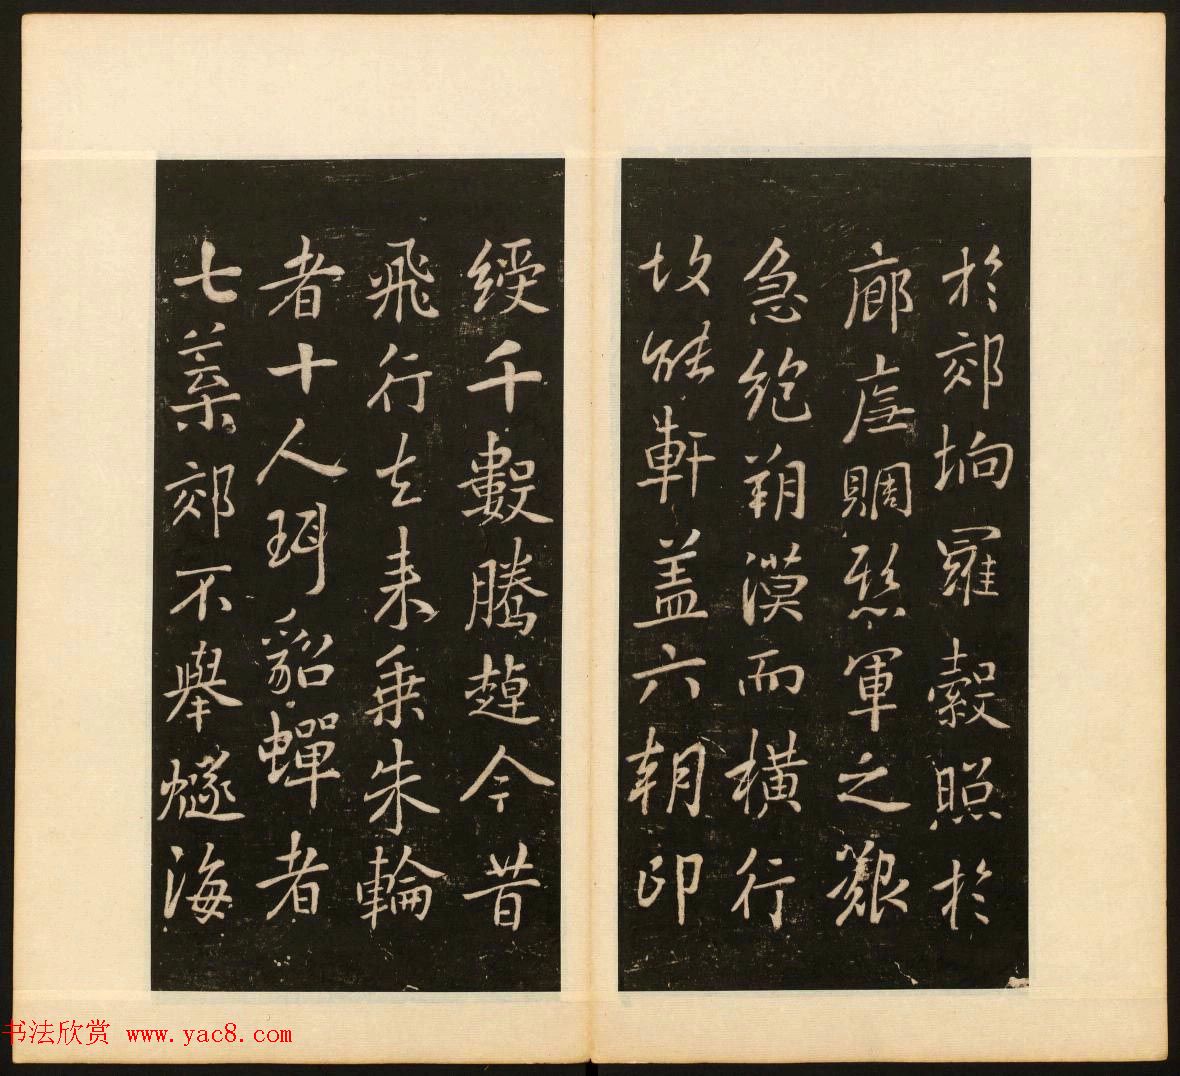 於郊坰羅縠照於
廊庑賙懸軍之艱
急絶朔漠而橫行
故能軒盖六朝印
綬千數騰趠今昔
飛行去来乗朱輪
者十人珥貂蟬者
七葉郊不舉燧海
书法欣赏 www.yac8.com